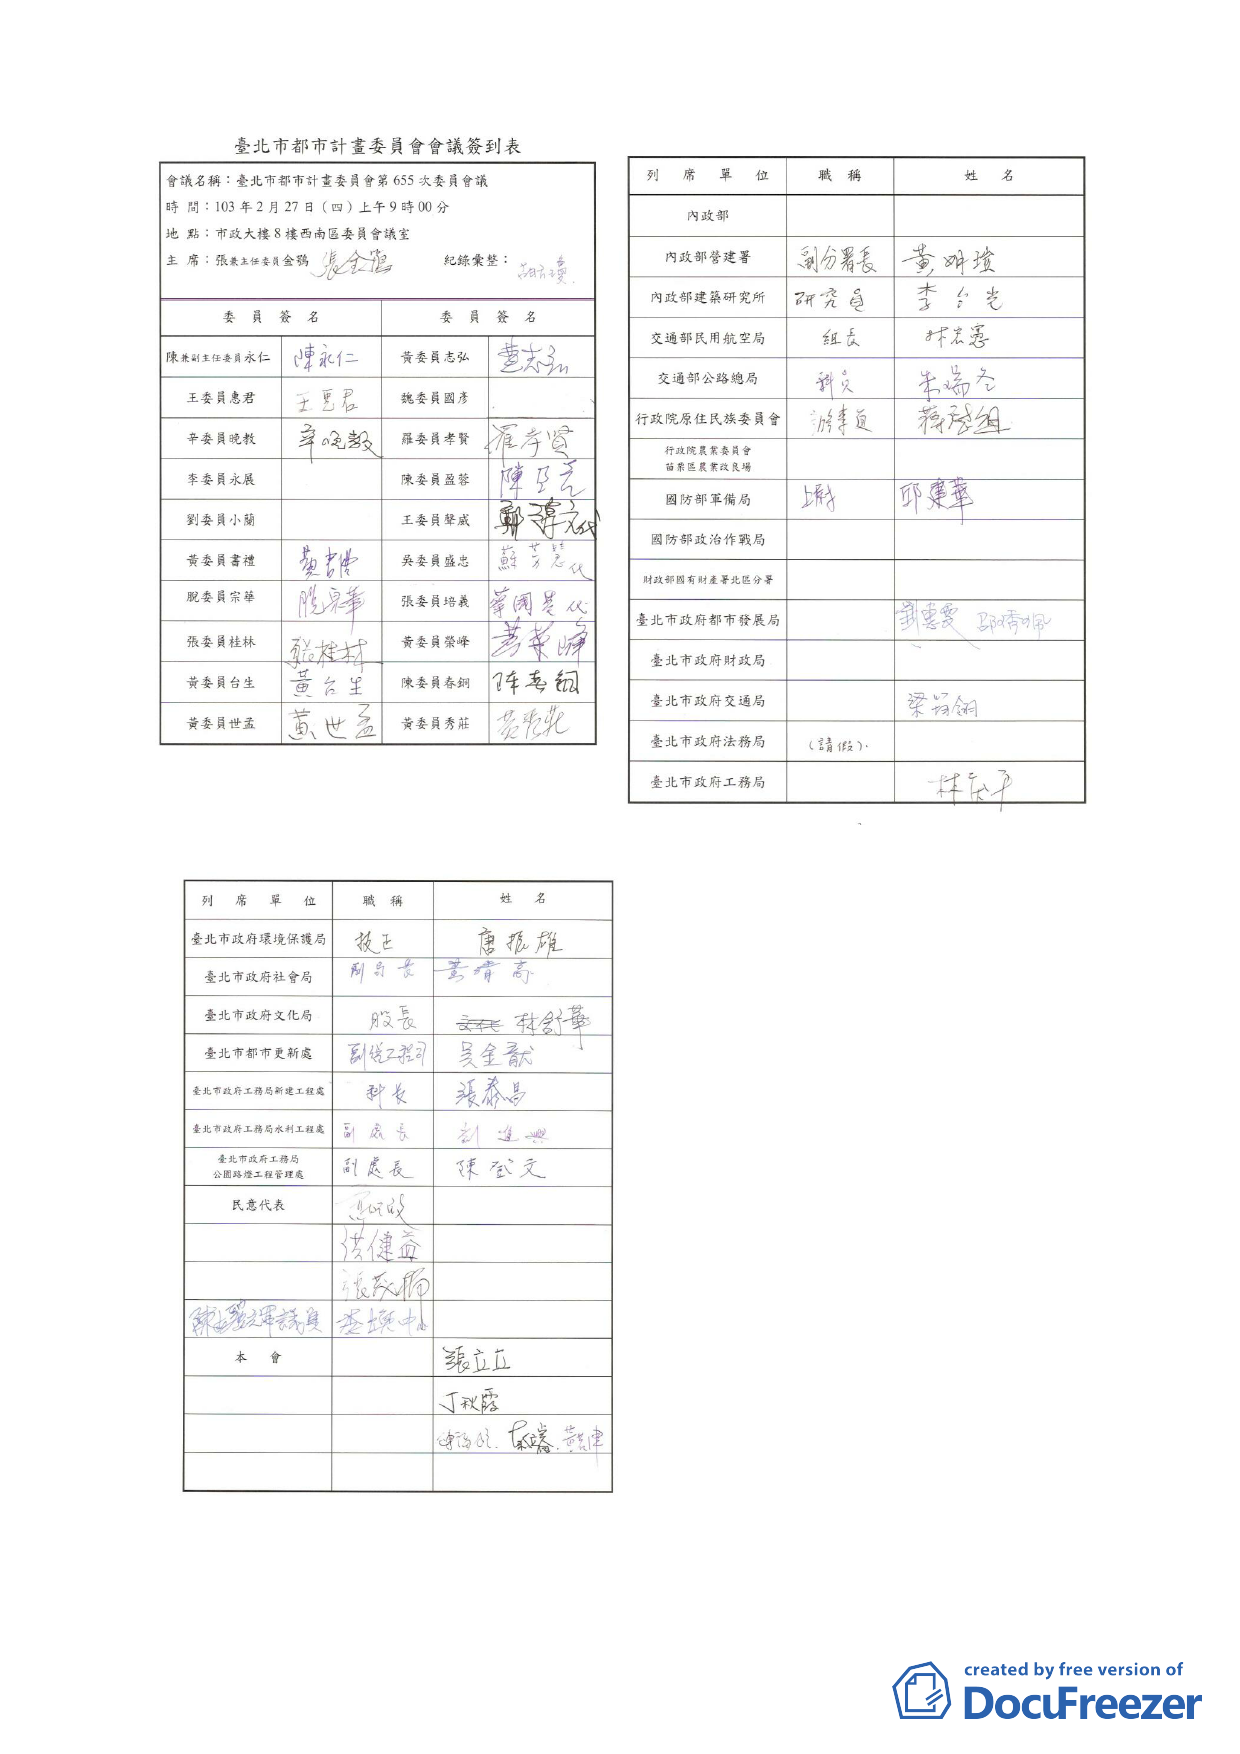 臺北市都市計畫委員會會議簽到表
會議名稱：臺北市都市計畫委員會第 655 次委員會議
時 間：103 年 2 月 27 日（四）上午 9 時 00 分
地 點：市政大樓 8 樓西南區委員會議室
主 席：張兼主任委員金鶚 張金鶚 紀錄彙整：
委 員 簽 名 委 員 簽 名
陳兼副主任委員永仁 陳永仁 黃委員志弘 黃志弘
王委員惠君 王惠君 魏委員國彥
辛委員晚教 辛晚教 羅委員孝賢 羅孝賢
李委員永展 陳委員盈蓉 陳盈蓉
劉委員小蘭 王委員聲威 代
黃委員書禮 黃書禮 吳委員盛忠 蘇芳慧代
脫委員宗華 脫宗華 張委員培義 代
張委員桂林 張桂林 黃委員榮峰 黃榮峰
黃委員台生 黃台生 陳委員春銅 陳春銅
黃委員世孟 黃世孟 黃委員秀莊 黃秀莊
列 席 單 位 職 稱 姓 名
內政部
內政部營建署 副分署長 黃明塏
內政部建築研究所 研究員 李台光
交通部民用航空局 組長 林志憲
交通部公路總局 科員 朱瑞冬
行政院原住民族委員會
行政院農業委員會
苗栗區農業改良場
國防部軍備局 上尉 邱建華
國防部政治作戰局
財政部國有財產署北區分署
臺北市政府都市發展局 劉惠雯
臺北市政府財政局
臺北市政府交通局
臺北市政府法務局 （請假）
臺北市政府工務局
列 席 單 位 職 稱 姓 名
臺北市政府環境保護局 技正 唐振雄
臺北市政府社會局 副局長 黃清高
臺北市政府文化局 股長 林舒華
臺北市都市更新處 副總工程司 吳金龍
臺北市政府工務局新建工程處 科長 張泰昌
臺北市政府工務局水利工程處 副處長 劉進興
臺北市政府工務局
公園路燈工程管理處 副處長 陳武文
民意代表
洪健益
張茂楠
議員
本 會 張立立
丁秋霞
created by free version of
DocuFreezer